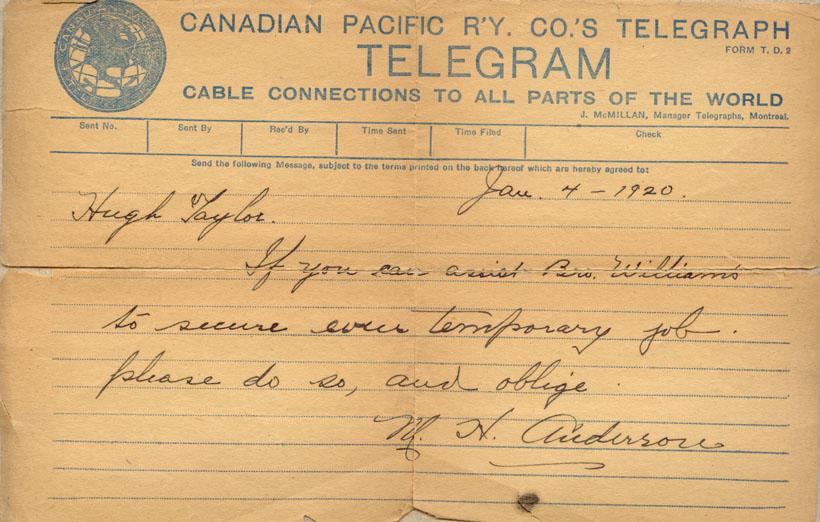 CANADIAN PACIFIC R'Y. CO.'S TELEGRAPH
FORM T. D. 2
TELEGRAM
CABLE CONNECTIONS TO ALL PARTS OF THE WORLD
J. McMILLAN, Manager Telegraphs, Montreal.
Sent No. Sent By Rec'd By Time Sent Time Filed Check
Send the following Message, subject to the terms printed on the back hereof which are hereby agreed to:
Jan. 4 - 1920.
Hugh Taylor.
If you can assist Bro. Williams
to secure even temporary job.
please do so, and oblige.
M. H. Anderson